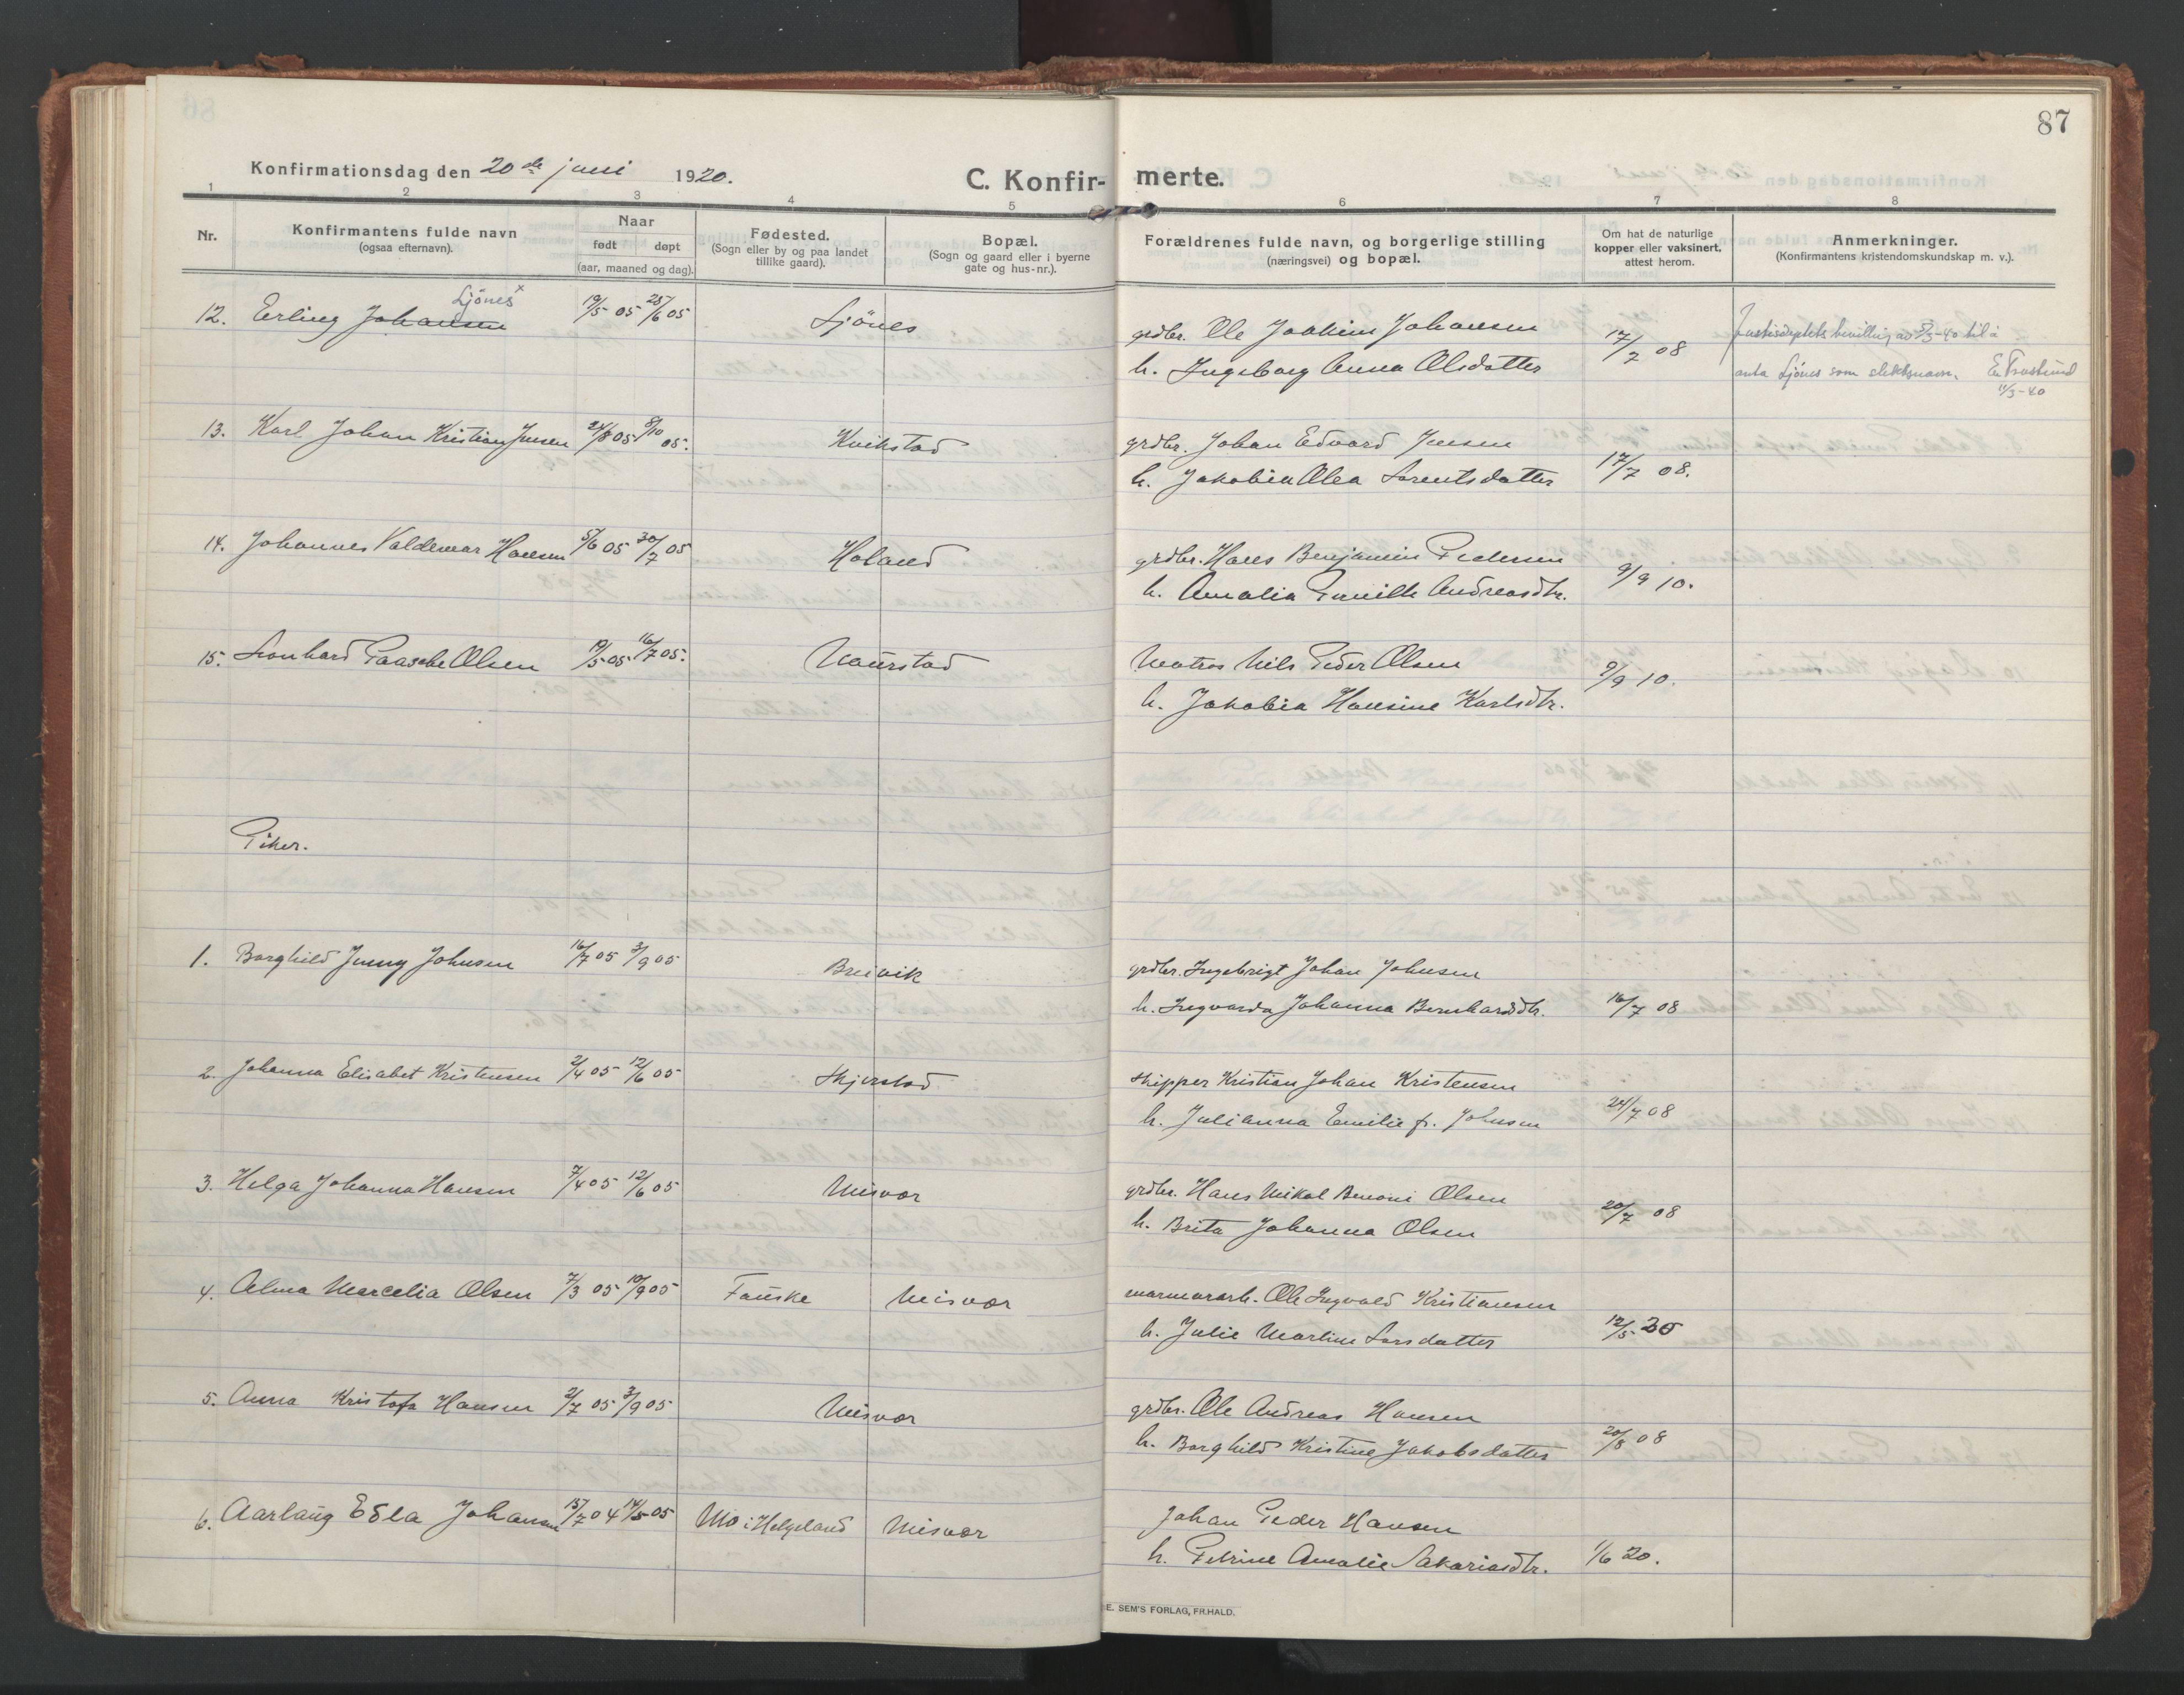 87
Konfirmationsdag den 20de juni 1920.
C. Konfir- merte.
1 2 3 4 5 6 7 8
Nr.
Konfirmantens fulde navn
(ogsaa efternavn).
Naar
født døpt
(aar, maaned og dag).
Fødested.
(Sogn eller by og paa landet
tillike gaard).
Bopæl.
(Sogn og gaard eller i byerne
gate og hus-nr.).
Forældrenes fulde navn, og borgerlige stilling
(næringsvei) og bopæl.
Om hat de naturlige
kopper eller vaksinert,
attest herom.
Anmerkninger.
(Konfirmantens kristendomskundskap m. v.).
Ljönes x
12. Erling Johansen 19/5 05 25/6 05 Ljönes grdbr. Ole Joakim Johansen 17/7 08
h. Ingeborg Anna Olsdatter
bevilling av 5/3-40 til å
anta Ljönes som slektsnavn.
11/3-40
13. Karl Johan Kristian Jensen 24/8 05 8/10 05. Kvikstad grdbr. Johan Edvard Jensen
h. Jakobia Olea Sorentsdatter 17/7 08.
14. Johannes Valdemar Hansen 5/6 05 30/7 05 Holand grdbr. Hans Benjamin Pedersen
h. Amalia Pernille Andreasdtr. 9/9 10.
15. Leonhard Paasche Olsen 19/5 05 16/7 05. Naurstad Matros Nils Peder Olsen
h. Jakobia Hansine Karlsdtr. 9/9 10.
Piker.
1. Borghild Jenny Johnsen 16/7 05 3/9 05 Breivik grdbr. Ingebrigt Johan Johnsen
h. Ingvarda Johanna Bernhardsdtr. 16/7 08
2. Johanna Elisabet Kristensen 2/4 05 12/6 05 Skjerstad skipper Kristian Johan Kristensen
h. Julianna Emilie f. Johnsen 24/7 08
3. Helga Johanna Hansen 7/4 05 12/6 05 Misvær grdbr. Hans Mikal Benoni Olsen
h. Brita Johanna Olsen 20/7 08
4. Alma Marcelia Olsen 7/3 05 10/9 05 Fauske Misvær marmorarb. Ole Ingvald Kristiansen
h. Julie Martine Larsdatter 12/5 20
5. Anna Kristofa Hansen 2/7 05 3/9 05 Misvær grdbr. Ole Andreas Hansen
h. Borghild Kristine Jakobsdatter 20/8 08
6. Aarlaug Edla Johansen 15/7 04 14/5 05 Mo i Helgeland Misvær Johan Peder Hansen
h. Petrine Amalie Sakariasdtr. 1/6 20.
E. SEM'S FORLAG, FR.HALD.